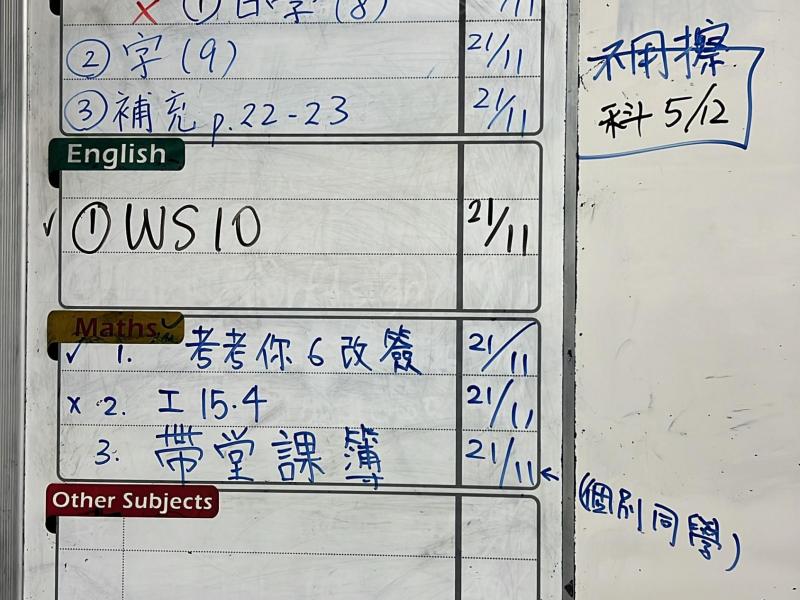 ① 日字 (8) /11
② 字 (9) 21/11
③ 補充 p.22-23 21/11
不用擦
科 5/12
English
✓ ① WS 10 21/11
Maths ✓
✓ 1. 考考你 6 改簽 21/11
x 2. 工 15.4 21/11
3. 帶堂課簿 21/11 ←
(個別同學)
Other Subjects